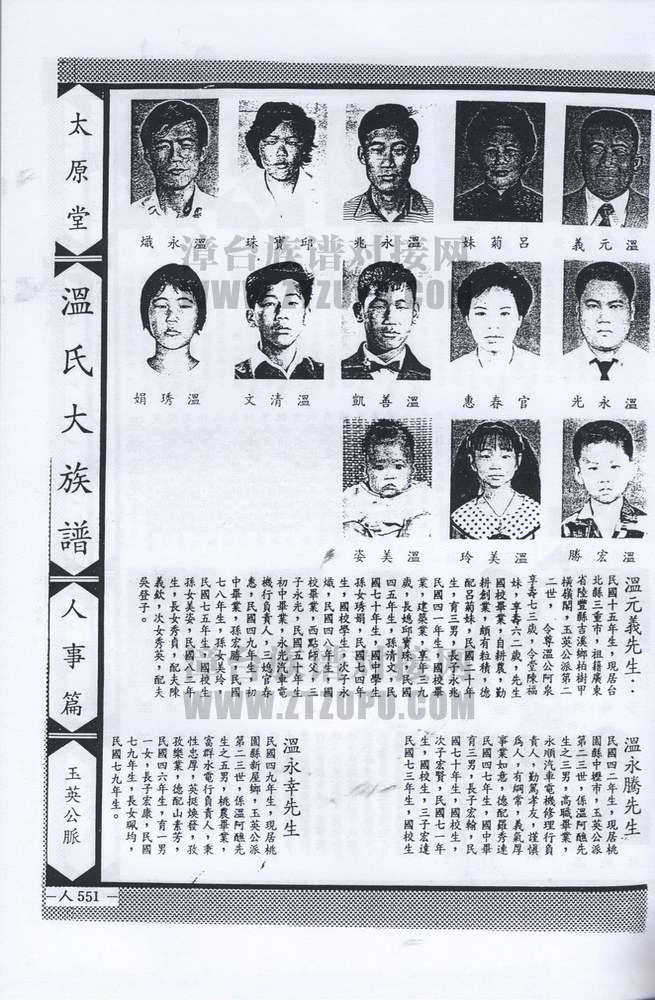 太原堂
溫氏大族譜
人事篇
玉英公脈
人 551
溫元義
呂菊妹
溫永兆
邱寶珠
溫永熾
溫永光
官春惠
溫善凱
溫清文
溫琇娟
溫宏勝
溫美玲
溫美姿
漳台族谱对接网
WWW.ZTZOPU.COM
溫元義先生：
民國十五年生，現居台
北縣三重市，祖籍廣東
省陸豐縣吉溪鄉柏樹甲
橫嶺閣，玉英公派第二
二世，令尊溫公阿泉
享壽七三歲，令堂陳福
妹，享壽六二歲，先生
國校畢業，自耕農，勤
耕創業，頗有粒積，德
配呂菊妹，民國二十年
生，育三男，長子永兆
民國四一年生，國校畢
業，建築業，享年三九
歲，長媳邱寶珠，民國
四五年生，孫清文，民
國七十年生，國中學生
孫女琇娟，民國七四年
生，國校學生，次子永
熾，民國四八年生，國
校畢業，西點師父，三
子永光，民國五十年生
初中畢業，永光汽車電
機行負責人，三媳官春
惠，民國四九年生，初
中畢業，孫宏勝，民國
七八年生，孫女美玲，
民國七五年生，國校生
孫女美姿，民國八二年
生，長女秀貞，配夫陳
義欽，次女秀英，配夫
吳登子。
溫永騰先生
民國四二年生，現居桃
園縣中壢市，玉英公派
第二三世，係溫阿醮先
生之三男，高職畢業，
永順汽車電機修理行負
責人，勤篤孝友，謹慎
為人，有綱常，義氣厚
事業如意，德配羅秀連
民國四七年生，國中畢
育三男，長子宏翰，民
國七十年生，國校生，
次子宏賢，民國七一年
生，國校生，三子宏達
民國七三年生，國校生
溫永幸先生
民國四九年生，現居桃
園縣新屋鄉，玉英公派
第二三世，係溫阿醮先
生之五男，桃農畢業，
富群水電行負責人，秉
性忠厚，英挺煥發，孜
孜樂業，德配山素芳，
民國四六年生，育一男
一女，長子宏康，民國
七九年生，長女珮均，
民國七九年生。
WWW.ZTZOPU.COM